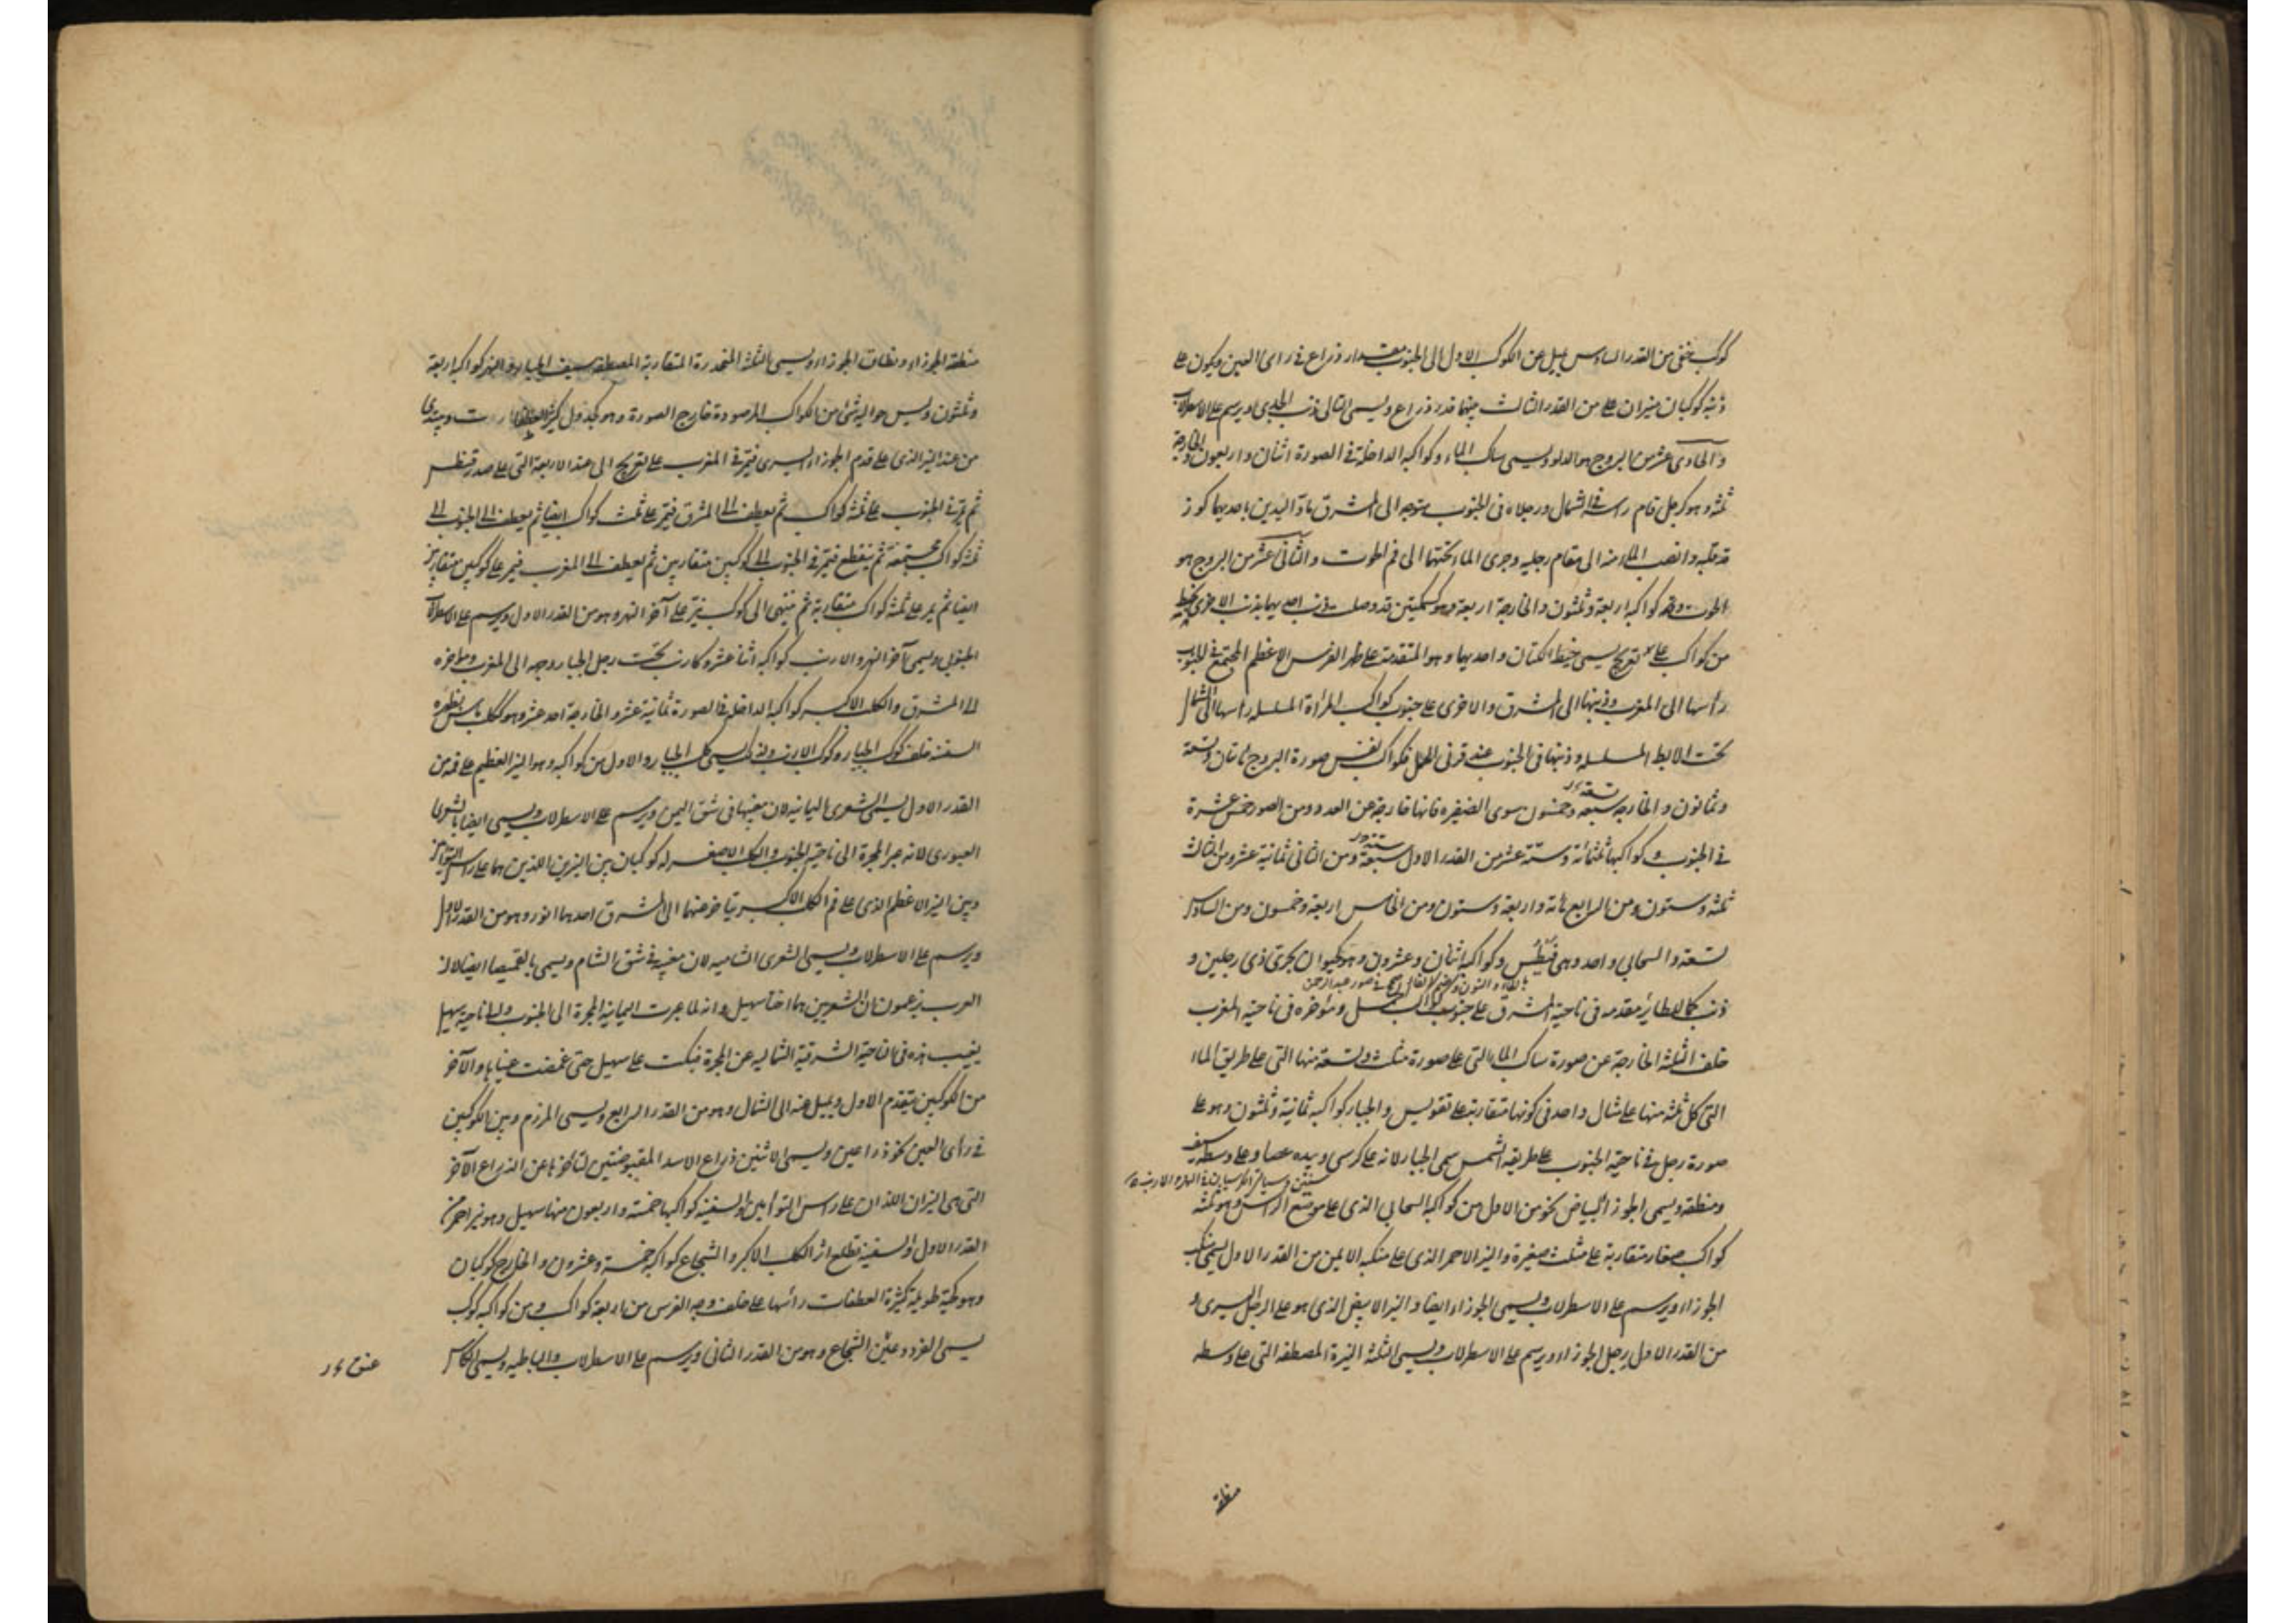 كوكب خفى من القدر السادس يميل عن الكوكب الاول الى الجنوب بمقدار ذراع فى راى العين ويكون على
ذنبه كوكبان نيران على من القدر الثالث بينهما قدر ذراع ويسمى التالى ذنب الجدى ويرسم على الاسطرلاب
والحادى عشر من البروج هو الدلو ويسمى ساكب الماء وكواكبه الداخلة فى الصورة اثنان واربعون والخارجة
ثلثه وهو كرجل قام راسه فى الشمال ورجلاه فى الجنوب متوجه الى المشرق ماد اليدين باحديهما كوز
قد قلبه وانصب الماء منه الى مقام رجليه وجرى الماء تحتهما الى فم الحوت والثانى عشر من البروج هو
الحوت وكواكبه اربعة وثلثون والخارجة اربعة وهو كسمكتين قد وصلت ذنب احديهما بذنب الاخرى بخيط
من كواكب على تعريج يسمى خيط الكتان واحديهما وهو المتقدمة على ظهر الفرس الاعظم المجتمع فى الجنوب
رأسها الى المغرب وذنبها الى المشرق والاخرى على جنوب كواكب المرأة المسلسله رأسها الى الشمال
تحت الابط المسلسله وذنبها فى الجنوب عند قرنى الحمل فكواكب نفس صورة البروج مأتان وتسعة
وثمانون والخارجه سبعه وخمسون سوى الضفيره فانها خارجة عن العدد ومن الصور خمس عشرة
تسعة
فى الجنوب وكواكبها ثلثمائة وستة عشر من القدر الاول سبعة ومن الثانى ثمانية عشر ومن الثالث
ثلثه وستون ومن الرابع مائة واربعة وستون ومن الخامس اربعة وخمسون ومن السادس
تسعة والسحابى واحد وهى قيطس وكواكبه اثنان وعشرون وهو كحيوان بحرى ذى رجلين و
ذنب كالطائر مقدمه فى ناحية المشرق على جنوب كواكب الحمل ومؤخره فى ناحية المغرب
خلف الثلثة الخارجة عن صورة ساكب الماء التى على صورة مثلث وتسعة منها التى على طريق الماء
التى كل ثلثه منها على مثال واحد فى كونها متقاربة على تقويس والجبار كواكبه ثمانية وثلثون وهو على
صورة رجل فى ناحية الجنوب على طريقة الشمس سمى الجبار لانه على كرسى وبيده عصا وعلى وسطه سيف
ومنطقه ويسمى الجوزاء لبياض نحو من الاول من كواكبه السحابى الذى على موضع الراس وهو ثلثه
كواكب صغار متقاربة على مثلث صغيرة والنير الاحمر الذى على منكبه الايمن من القدر الاول يسمى منكب
الجوزاء ويرسم على الاسطرلاب ويسمى الجوزاء ايضا والنير الابيض الذى هو على الرجل اليسرى و
من القدر الاول رجل الجوزاء ويرسم على الاسطرلاب ويسمى الثلثة النيرة المصطفه التى على وسطه
منطقة
منطقة الجوزاء ونطاق الجوزاء ويسمى الثلثة المنحدرة المتقاربة المصطفه سيف الجبار والنهر كواكبه اربعة
وثلثون وليس حواليه شئ من الكواكب المرصودة خارج الصورة وهو كجدول كثير العطفات ويبتدى
من عند النير الذى على قدم الجوزاء اليسرى فيمر فى المغرب على تعريج الى عند الاربعة التى على صدر قيطس
ثم يمر فى الجنوب على ثلثة كواكب ثم يعطف الى المشرق فيمر على ثلث كواكب ايضا ثم يعطف الى الجنوب الى
ثلثة كواكب مجتمعة ثم ينقطع فيمر فى الجنوب الى كوكبين متقاربين ثم يعطف الى المغرب فيمر على كوكبين متقاربين
ايضا ثم يمر على ثلثة كواكب متقاربة ثم ينتهى الى كوكب نير على آخر النهر وهو من القدر الاول ويرسم على الاسطرلاب
الجنوبى ويسمى آخر النهر والارنب كواكبه اثنا عشر وكارنب تحت رجل الجبار وجهه الى المغرب ومؤخره
الى المشرق والكلب الاكبر كواكبه الداخلة فى الصورة ثمانية عشر والخارجة احد عشر وهو ككلب
السفينة خلف كوكب الجبار وكوكب الارنب ولذلك يسمى كلب الجبار والاول من كواكبه وهو النير العظيم على فمه من
القدر الاول يسمى الشعرى اليمانيه لان مغيبها فى شق اليمن ويرسم على الاسطرلاب ويسمى ايضا بالشعرى
العبورى لانه عبر المجرة الى ناحية الجنوب والكلب الاصغر له كوكبان بين النيرين اللذين هما على راس التوأمين
وبين النير الاعظم الذى على فم الكلب الاكبر يتاخر عنهما الى المشرق احدهما انور وهو من القدر الاول
ويرسم على الاسطرلاب ويسمى الشعرى الشاميه لان مغيبه فى شق الشام ويسمى بالغميصا ايضا لان
العرب يزعمون ان الشعريين هما اختا سهيل وانه لما عبرت اليمانية المجرة الى الجنوب والى ناحية سهيل
بقيت هذه فى الناحية الشرقية الشماليه عن المجرة فبكت على سهيل حتى غمضت عيناها والآخر
من الكوكبين يتقدم الاول ويميل عنه الى الشمال وهو من القدر الرابع ويسمى المرزم وبين الكوكبين
فى رأى العين نحو ذراعين ويسمى الاثنين ذراع الاسد المقبوضتين لتاخرها عن الذراع الآخر
التى هى النيران اللذان على راس التوأمين والسفينة كواكبها خمسة واربعون منها سهيل وهو نير احمر من
القدر الاول والسفينة تطلع اثر الكلب الاكبر والشجاع كواكبه خمسة وعشرون والخارج كوكبان
وهو كحية طويلة كثيرة العطفات رأسها على خلف وجه الفرس من اربعة كواكب ومن كواكبه كوكب
يسمى الفرد وعنق الشجاع وهو من القدر الثانى ويرسم على الاسطرلاب والباطيه ويسمى الكاس
عنق